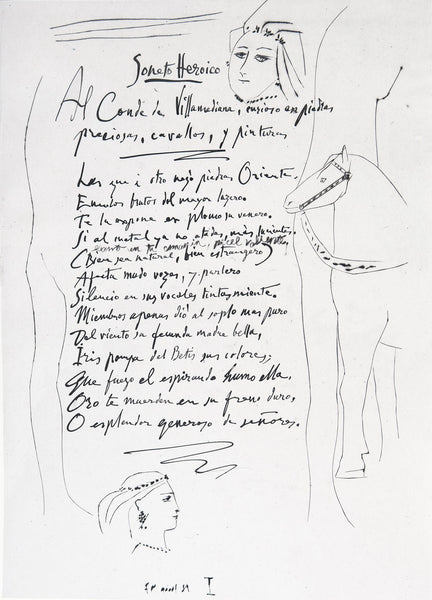 Soneto Heroico
Al Conde de Villamediana, curioso en piedras
preciosas, cavallos, y pinturas
Las que a otro negó piedras Oriente.
Emulas brutas del mayor luzero.
Te las expone en plomo su venero.
Si al metal ya no atadas, mas lucientes.
cuanto en tu camarin, pincel valiente,
(Bien sea natural, bien estrangero)
Afecta mudo vozes, y parlero
Silencio en sus vocales tintas miente.
Miembros apenas dió al soplo mas puro
Del viento su fecunda madre bella,
Iris pompa del Betis sus colores;
Que fuego el espirando humo ella,
Oro te muerden en su freno duro,
O esplendor generoso de señores.
I